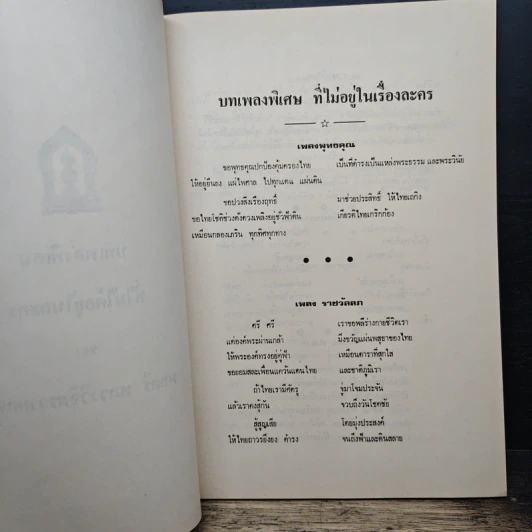 บทเพลงพิเศษ ที่ไม่อยู่ในเรื่องละคร
เพลงพุทธคุณ
ขอพุทธคุณปกป้องคุ้มครองไทย เป็นที่ดำรงเป็นแหล่งพระธรรม และพระวินัย
ให้อยู่ยืนยง แผ่ไพศาล ไปทุกแคน แผ่นดิน
ขอปวงสิ่งเรืองฤทธิ์ มาช่วยประสิทธิ์ ให้ไทยเถกิง
ขอไทยโชติช่วงดั่งดวงเพลิงอยู่ชั่วฟ้าดิน เกียรติไทยเกริกก้อง
เหมือนกลองเภริน ทุกทิศทุกทาง
เพลง ราชวัลลภ
ศรี ศรี เราขอพลีร่างกายชีวิตเรา
แด่องค์พระผ่านเกล้า มิ่งขวัญแผ่นพสุธาของไทย
ให้พระองค์ทรงอยู่คู่ฟ้า เหมือนดาราที่สุกใส
ขอยอมสละเพื่อนแคว้นแดนไทย และชาติภูมิเรา
ถ้าไทยเรามีศัตรู จู่มาโจมประจัน
แล้วเราคงสู้กัน จวบถึงวันโชคชัย
สู้สูญเสีย โดยมุ่งประสงค์
ให้ไทยถาวรยิ่งยง ดำรง จนถึงฟ้าและดินสลาย